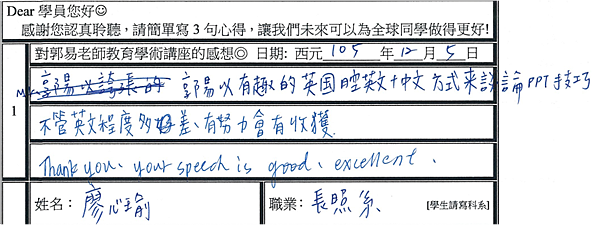 Dear 學員您好☺
感謝您認真聆聽，請簡單寫 3 句心得，讓我們未來可以為全球同學做得更好!
對郭易老師教育學術講座的感想◎ 日期: 西元 105 年 12 月 5 日
郭易以有趣的英国腔英文十中文方式来談論PPT技巧
1
不管英文程度多好差,有努力會有收獲.
Thank you. your speech is good. excellent.
姓名: 廖心瑜 職業: 長照系 [學生請寫科系]